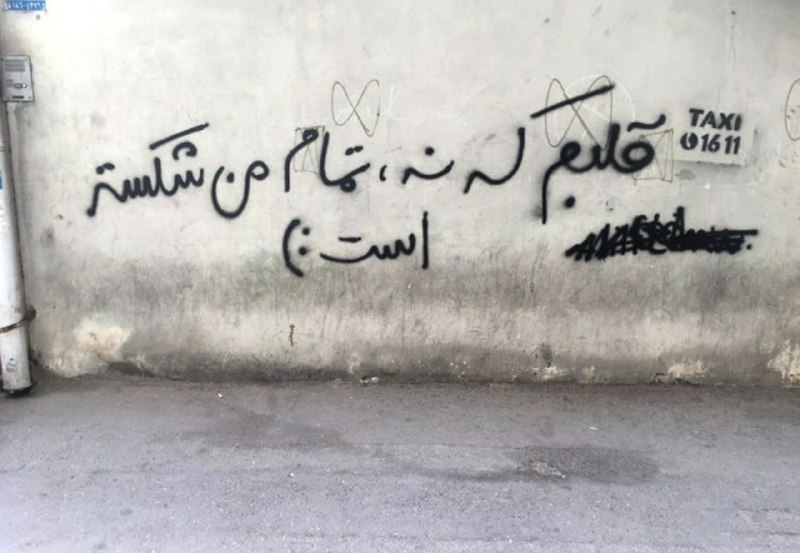 قلبم که نه، تمام من شکسته
است :)
TAXI
1611